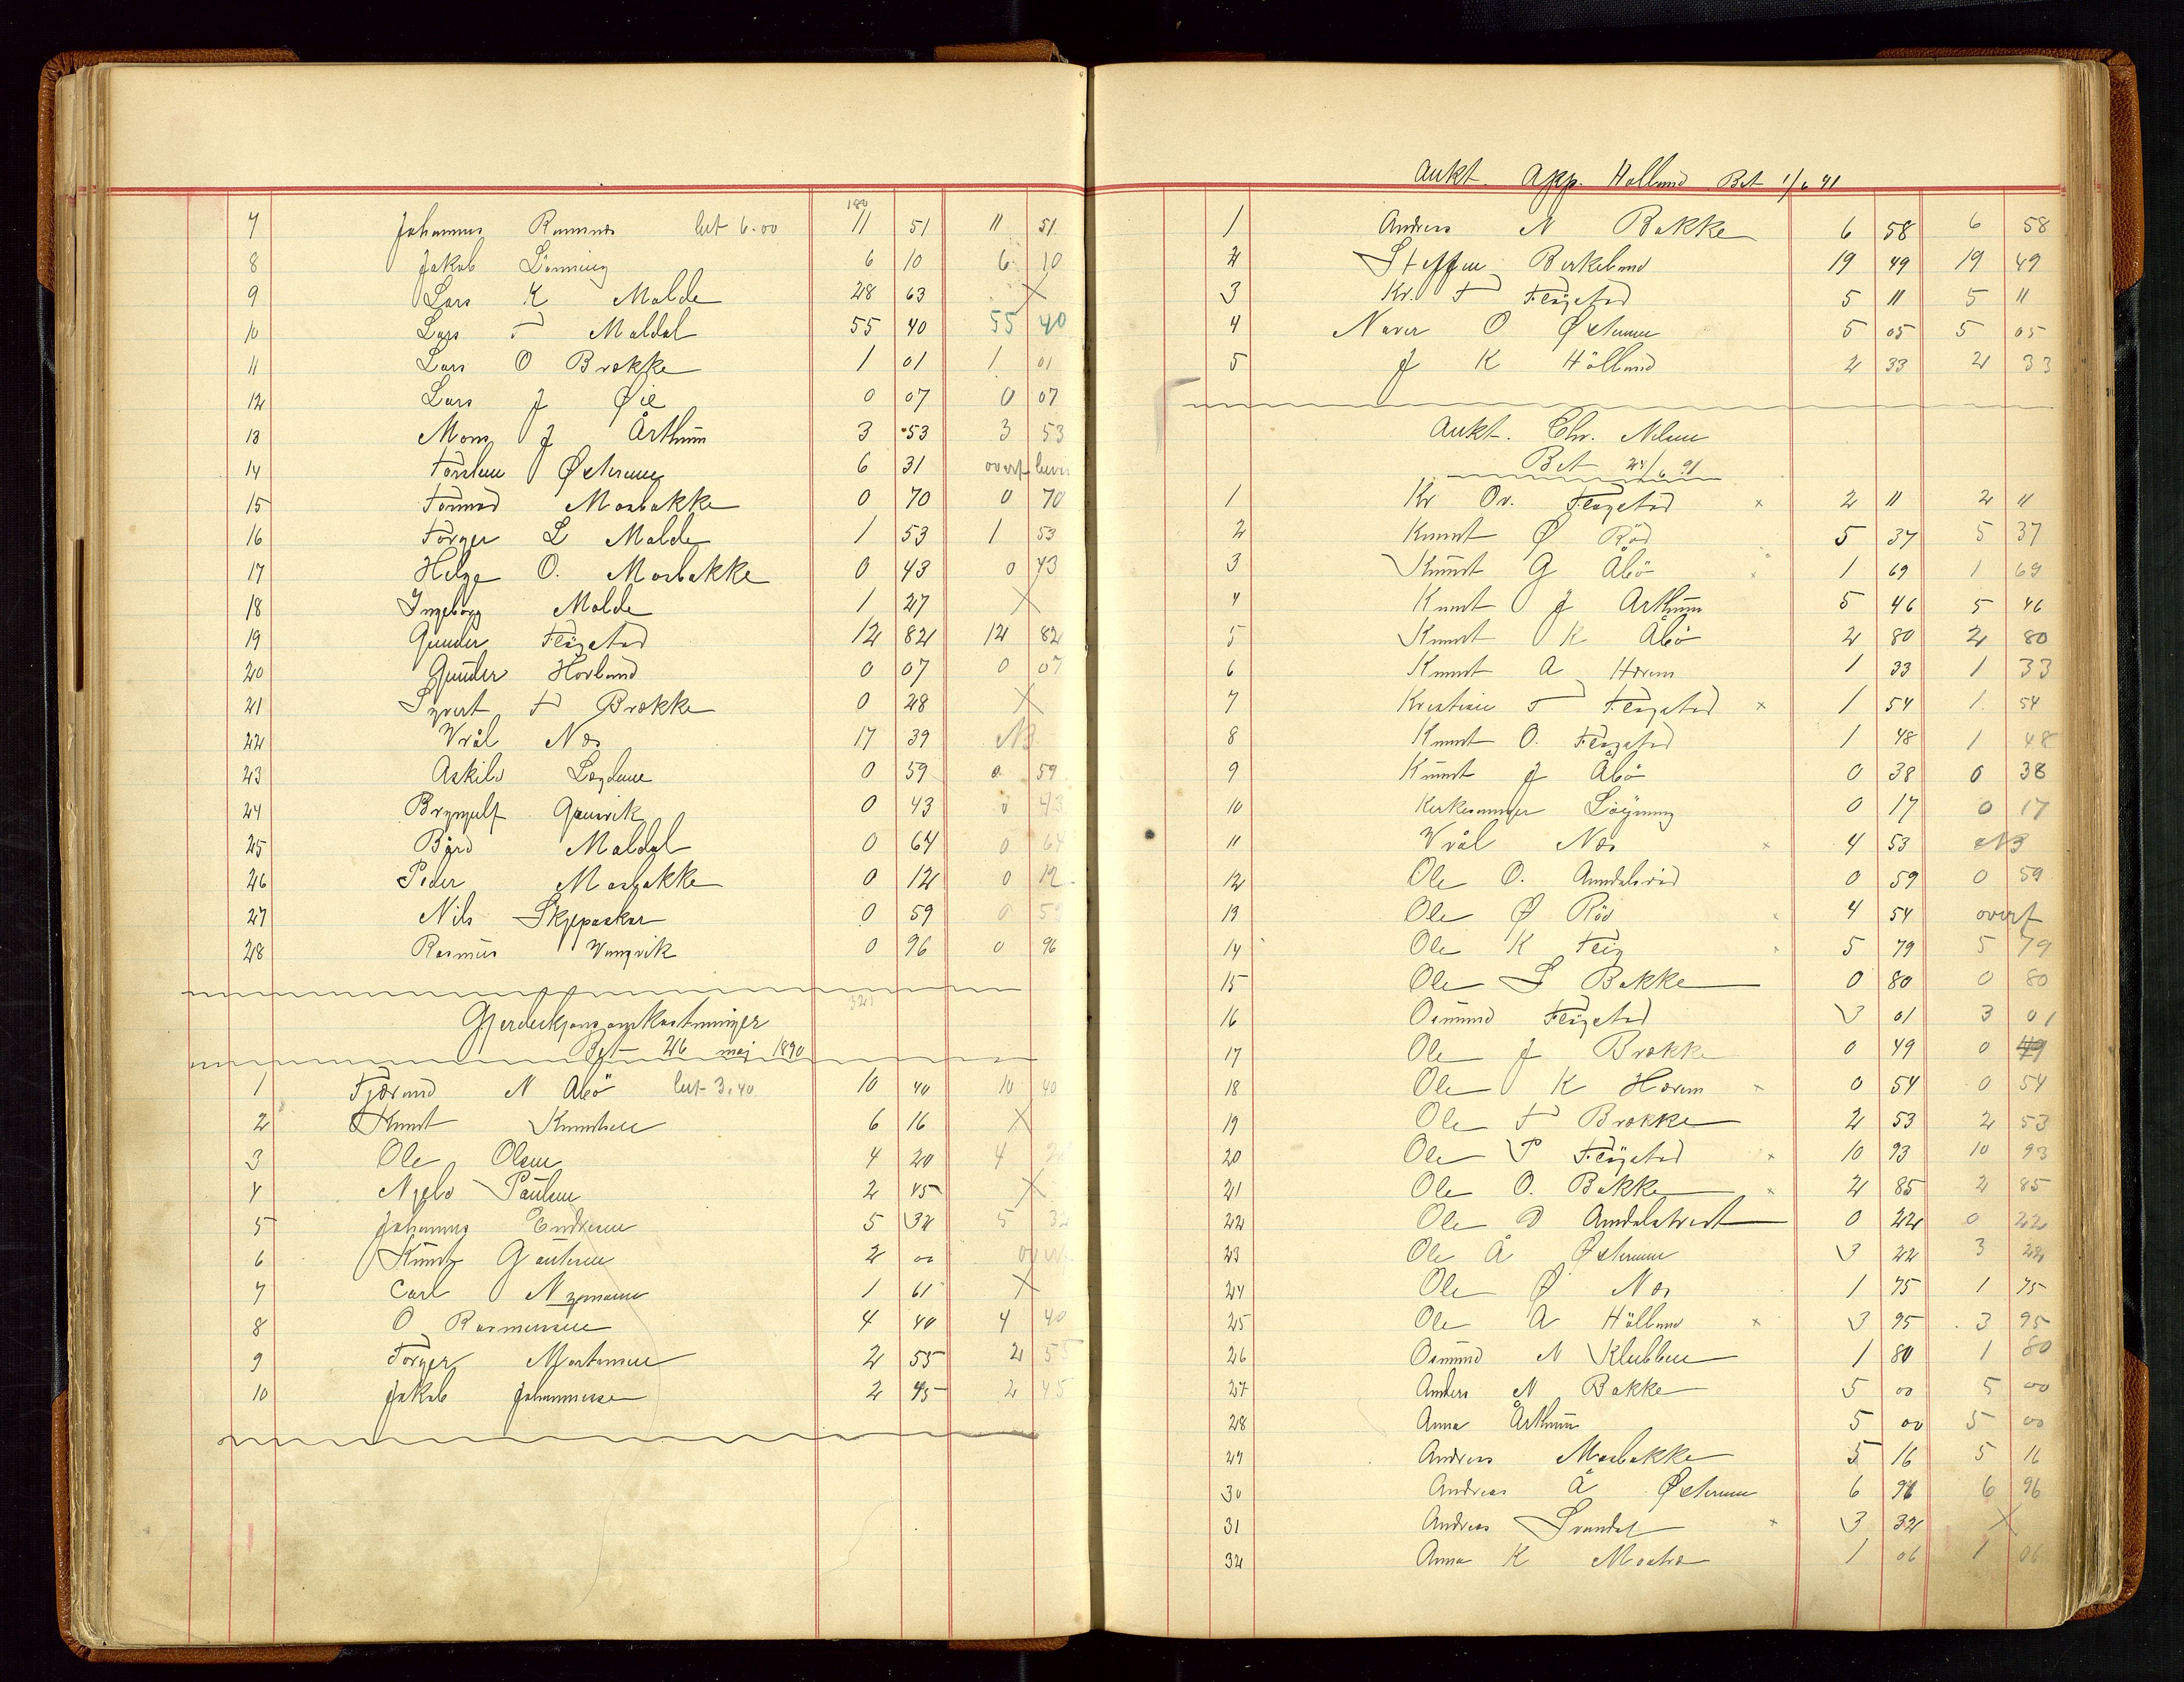 180
7 Johannes Rasmus bet 6.00 11 51 11 51
8 Jakob Lönning 6 10 6 10
9 Lars K Malde 28 63 X
10 Lars T Maldal 55 40 55 40
11 Lars O Brække 1 01 1 01
12 Lars J Øie 0 07 0 07
13 Mons J Årthun 3 53 3 53
14 Torsten Østernen 6 31 overf
15 Tormod Mosbakke 0 70 0 70
16 Torger L Malde 1 53 1 53
17 Helge O. Mosbakke 0 43 0 43
18 Ingeborg Malde 1 27 X
19 Gunder Fløgstad 12 82 12 82
20 Gunder Hovland 0 07 0 07
21 Syvert T Brække 0 28 X
22 Vrål Næs 17 39 NB
23 Askild 0 59 0 59
24 Brynjulf Gauvik 0 43 0 43
25 Bård Maldal 0 64 0 64
26 Peder Mosbakke 0 12 0 12
27 Nils 0 59 0 59
28 Rasmus Vangvik 0 96 0 96
320
Bet 26 maj 1890
1 N Abö bet 3.40 10 40 10 40
2 Knut Knutsen 6 16 X
3 Ole Olsen 4 20 4 20
4 Paulsen 2 45 X
5 Johannes Endresen 5 32 5 32
6 Knut Gautesen 2 00 overf
7 Carl Nymann 1 61 X
8 O Rasmussen 4 40 4 40
9 Torger Mortensen 2 55 2 55
10 Jakob Johannessen 2 45 2 45
Aukt. App. Holland Bet 1/6 91
1 Andreas N Bakke 6 58 6 58
2 Steffen Birkeland 19 49 19 49
3 Kr. T Fløgstad 5 11 5 11
4 O Østernen 5 05 5 05
5 J K Hölland 2 33 2 33
Aukt. Chr. Nilsen
Bet 28/6 91
1 Kr Or. Fløgstad x 2 11 2 11
2 Knut Ø Röd 5 37 5 37
3 Knut G Åbö 1 69 1 69
4 Knut J Arthun 5 46 5 46
5 Knut K Åbö 2 80 2 80
6 Knut A Hærem 1 33 1 33
7 Kristian T Fløgstad x 1 54 1 54
8 Knut O. Fløgstad 1 48 1 48
9 Knut J Åbö 0 38 0 38
10 Kirkesanger 0 17 0 17
11 Vrål Næs x 4 53 NB
12 Ole O. 0 59 0 59
13 Ole Ø Röd 4 54 overf
14 Ole K 5 79 5 79
15 Ole S Bakke 0 80 0 80
16 Osmund Fløgstad 3 01 3 01
17 Ole J Brække 0 49 0 49
18 Ole K Hærem 0 54 0 54
19 Ole T Brække 2 53 2 53
20 Ole P Fløgstad x 10 93 10 93
21 Ole O. Bakke x 2 85 2 85
22 Ole 0 22 0 22
23 Ole Å Østernen 3 22 3 22
24 Ole Ø Næs 1 75 1 75
25 Ole A Hölland x 3 95 3 95
26 Osmund N Klubben 1 80 1 80
27 Anders N Bakke 5 00 5 00
28 Anna Årthun 5 00 5 00
29 Andreas Mosbakke 5 16 5 16
30 Andreas Å Østernen 6 96 6 96
31 Andreas Svandal x 3 32 X
32 Anna K 1 06 1 06